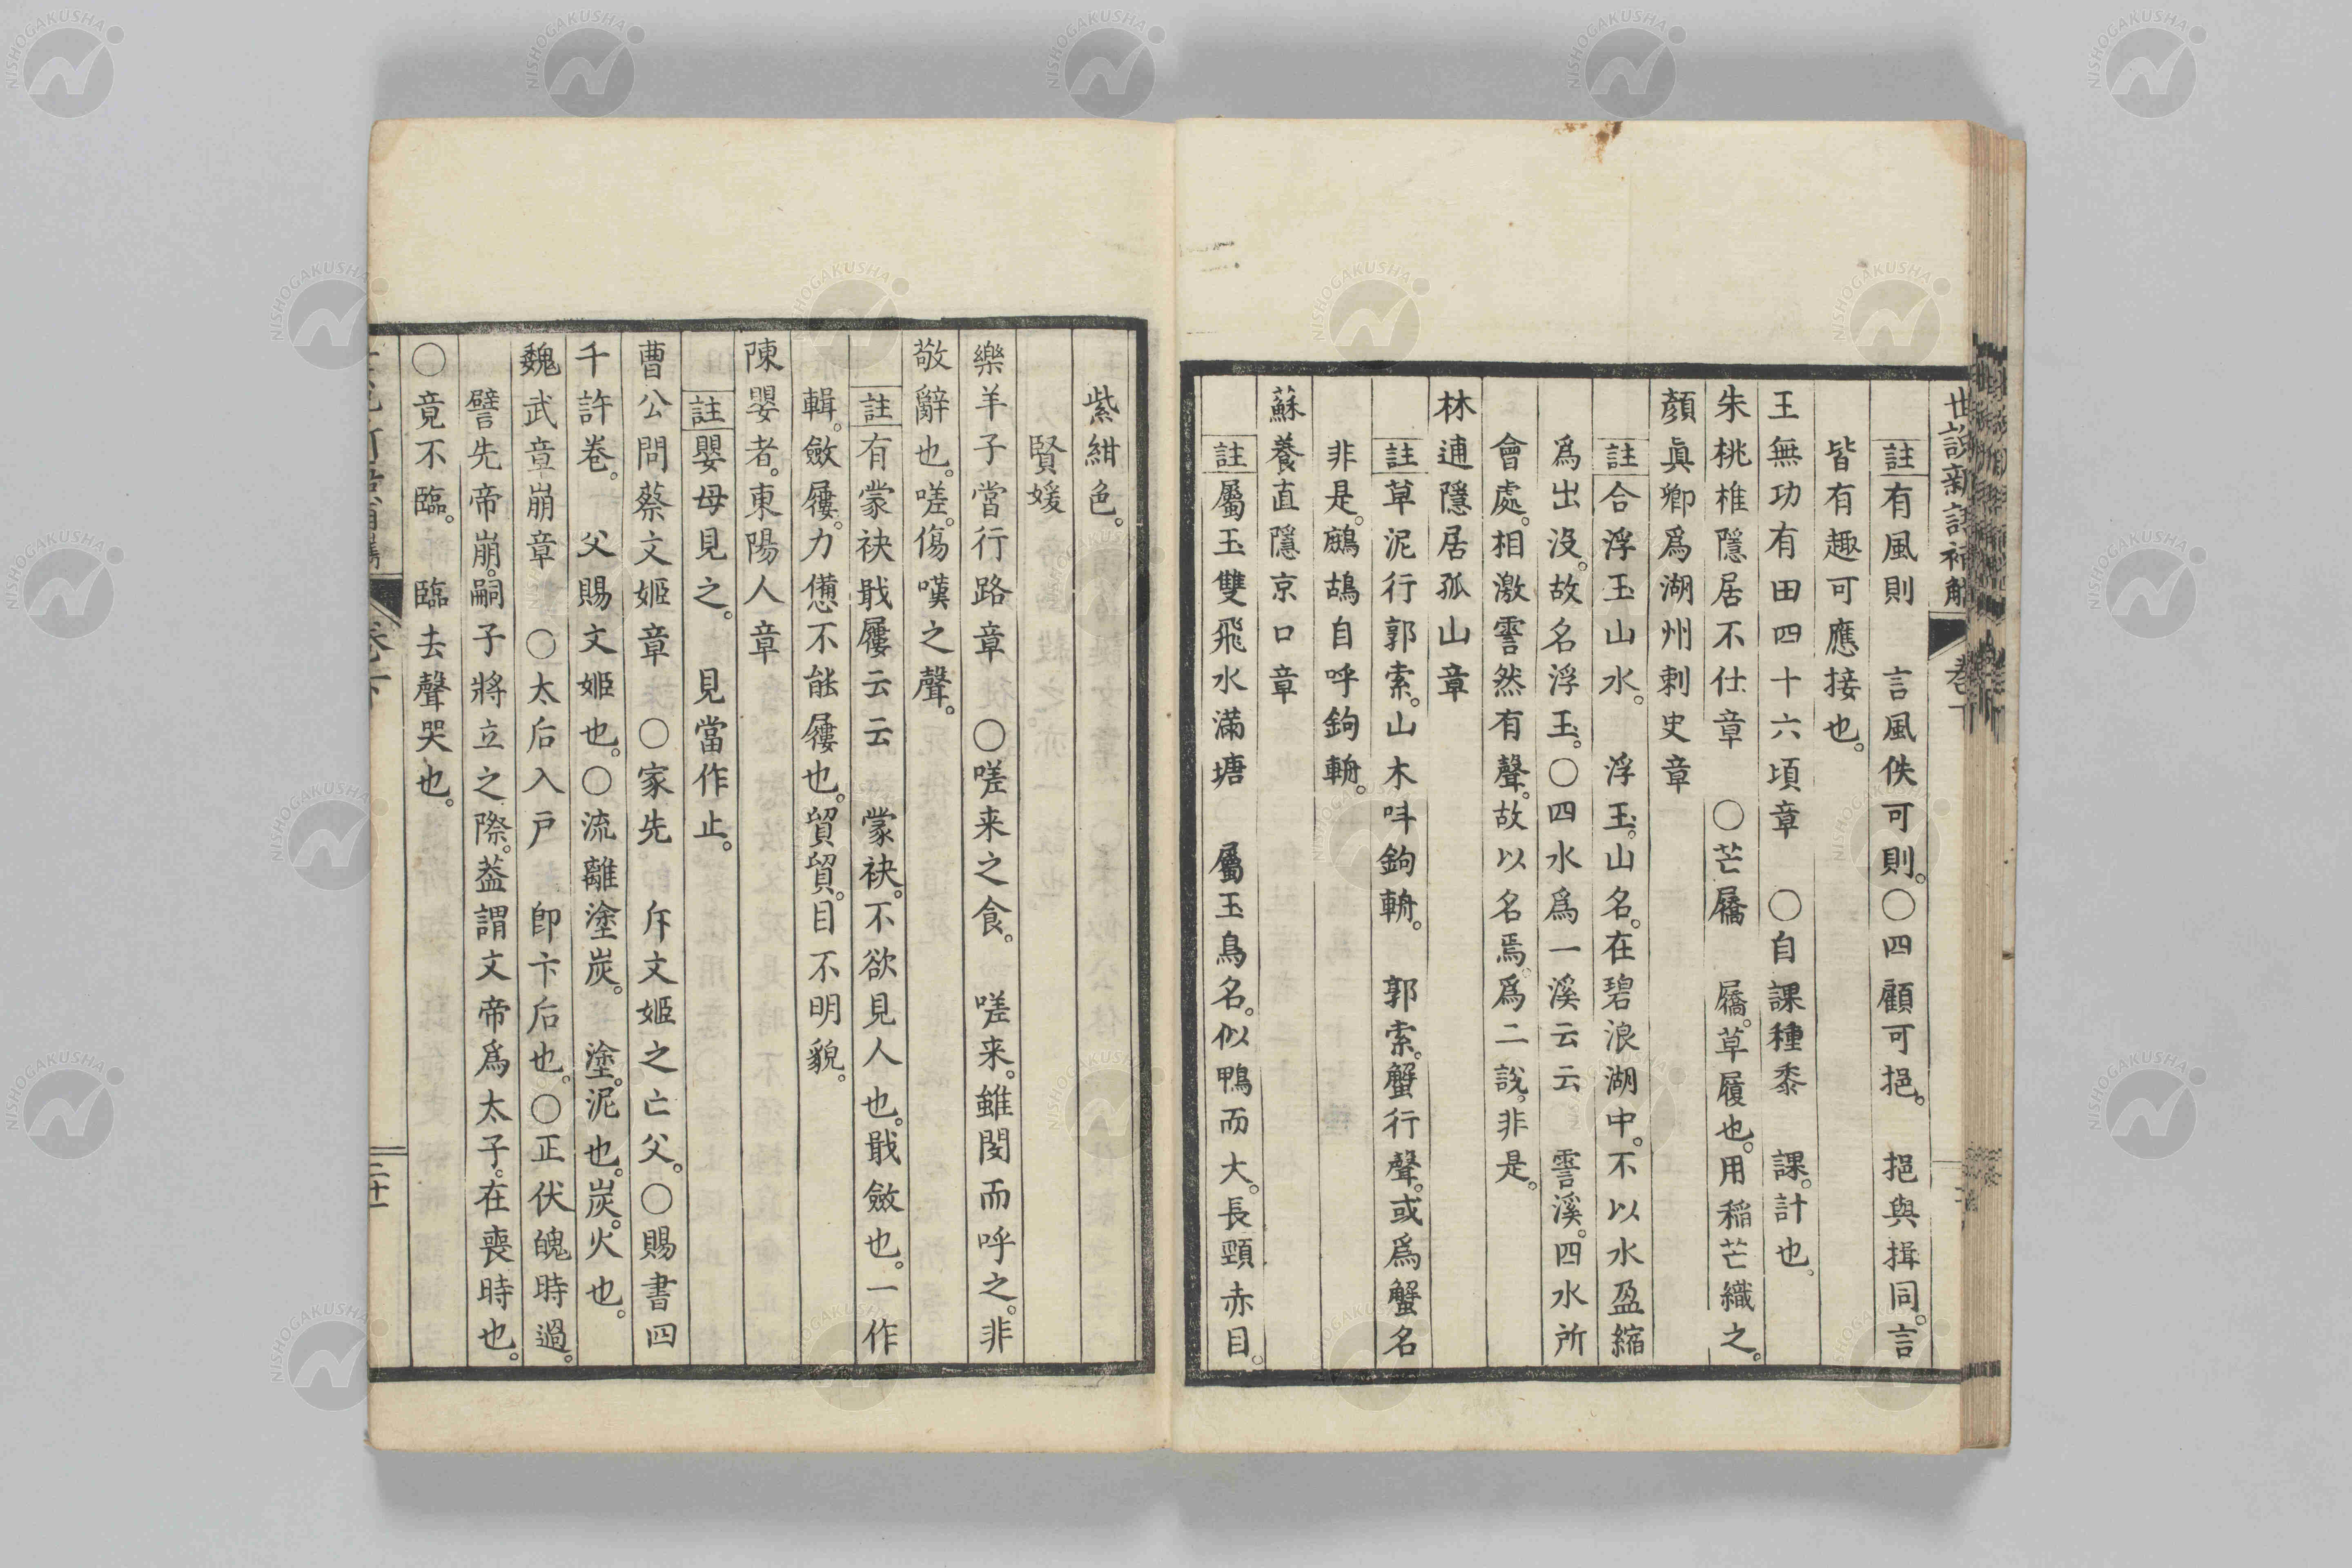 世說新語補觿　卷下
註有風則　言風佚可則。〇四顧可挹。　挹與揖同。言
皆有趣可應接也。
王無功有田四十六頃章　〇自課種黍　課。計也。
朱桃椎隱居不仕章　〇芒屩　屩。草履也。用稲芒織之。
顏眞卿爲湖州刺史章
註合浮玉山水。　浮玉。山名。在碧浪湖中。不以水盈縮
爲出沒。故名浮玉。〇四水爲一溪云云　霅溪。四水所
會處。相激霅然有聲。故以名焉。爲二說。非是。
林逋隱居孤山章
註草泥行郭索。山木呌鉤輈。　郭索。蟹行聲。或爲蟹名
非是。鷓鴣自呼鉤輈。
蘇養直隱京口章
註屬玉雙飛水滿塘　屬玉鳥名。似鴨而大。長頸赤目。
紫紺色。
賢媛
樂羊子當行路章　〇嗟来之食。　嗟来。雖閔而呼之。非
敬辭也。嗟。傷嘆之聲。
註有蒙袂戢屨云云　蒙袂。不欲見人也。戢斂也。一作
輯。斂屨。力憊不能屨也。貿貿。目不明貌。
陳嬰者。東陽人章
註嬰母見之。　見當作止。
曹公問蔡文姬章　〇家先　斥文姬之亡父。〇賜書四
千許巻。　父賜文姬也。〇流離塗炭。　塗。泥也。炭。火也。
魏武章崩章　〇太后入戸　卽卞后也。〇正伏魄時過。
譬先帝崩。嗣子將立之際。葢謂文帝爲太子。在喪時也。
〇竟不臨。　臨去聲哭也。
二十一